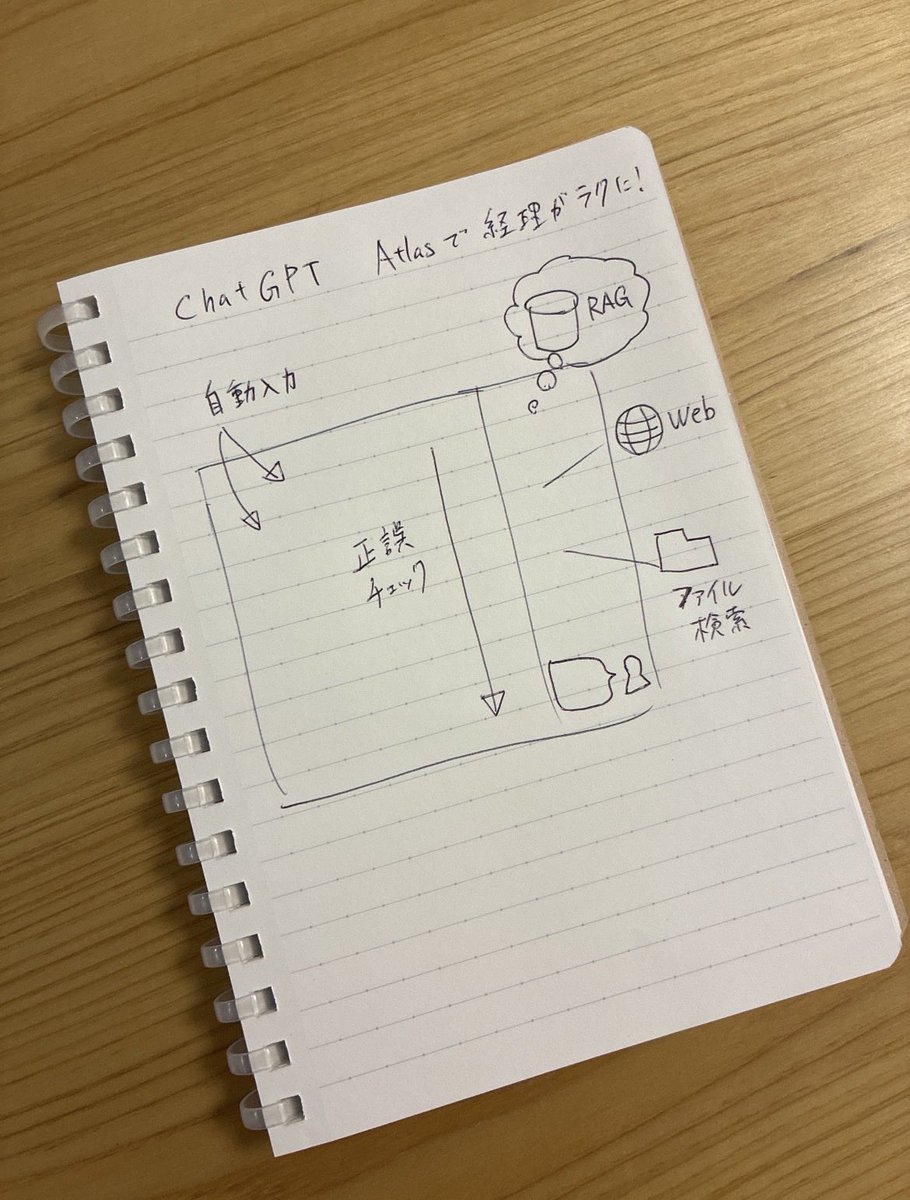 ChatGPT Atlasで経理がラクに!
RAG
自動入力
Web
正誤
チェック
ファイル
検索